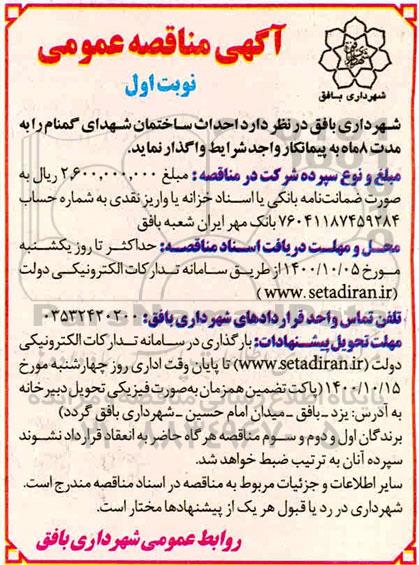 شهرداری بافق
آگهی مناقصه عمومی
نوبت اول
شهرداری بافق در نظر دارد احداث ساختمان شهدای گمنام را به
مدت ۸ماه به پیمانکار واجد شرایط واگذار نماید.
مبلغ و نوع سپرده شرکت در مناقصه : مبلغ ۲,۶۰۰,۰۰۰,۰۰۰ ریال به
صورت ضمانت‌نامه بانکی یا اسناد خزانه یا واریز نقدی به شماره حساب
۷۶۰۴۱۱۸۷۴۵۹۲۸۴ بانک مهر ایران شعبه بافق
محل و مهلت دریافت اسناد مناقصه: حداکثر تا روز یکشنبه
مورخ ۱۴۰۰/۱۰/۰۵ از طریق سامانه تدارکات الکترونیکی دولت
(www. setadiran.ir)
تلفن تماس واحد قراردادهای شهرداری بافق: ۰۳۵۳۲۴۲۰۲۰۰
مهلت تحویل پیشنهادات: بارگذاری در سامانه تدارکات الکترونیکی
دولت (www.setadiran.ir) تا پایان وقت اداری روز چهارشنبه مورخ
۱۴۰۰/۱۰/۱۵(پاکت تضمین همزمان به صورت فیزیکی تحویل دبیرخانه
به آدرس: یزد ـ بافق ـ میدان امام حسین ـ شهرداری بافق گردد)
برندگان اول و دوم و سوم مناقصه هرگاه حاضر به انعقاد قرارداد نشوند
سپرده آنان به ترتیب ضبط خواهد شد.
سایر اطلاعات و جزئیات مربوط به مناقصه در اسناد مناقصه مندرج است.
شهرداری در رد یا قبول هر یک از پیشنهادها مختار است.
روابط عمومی شهرداری بافق